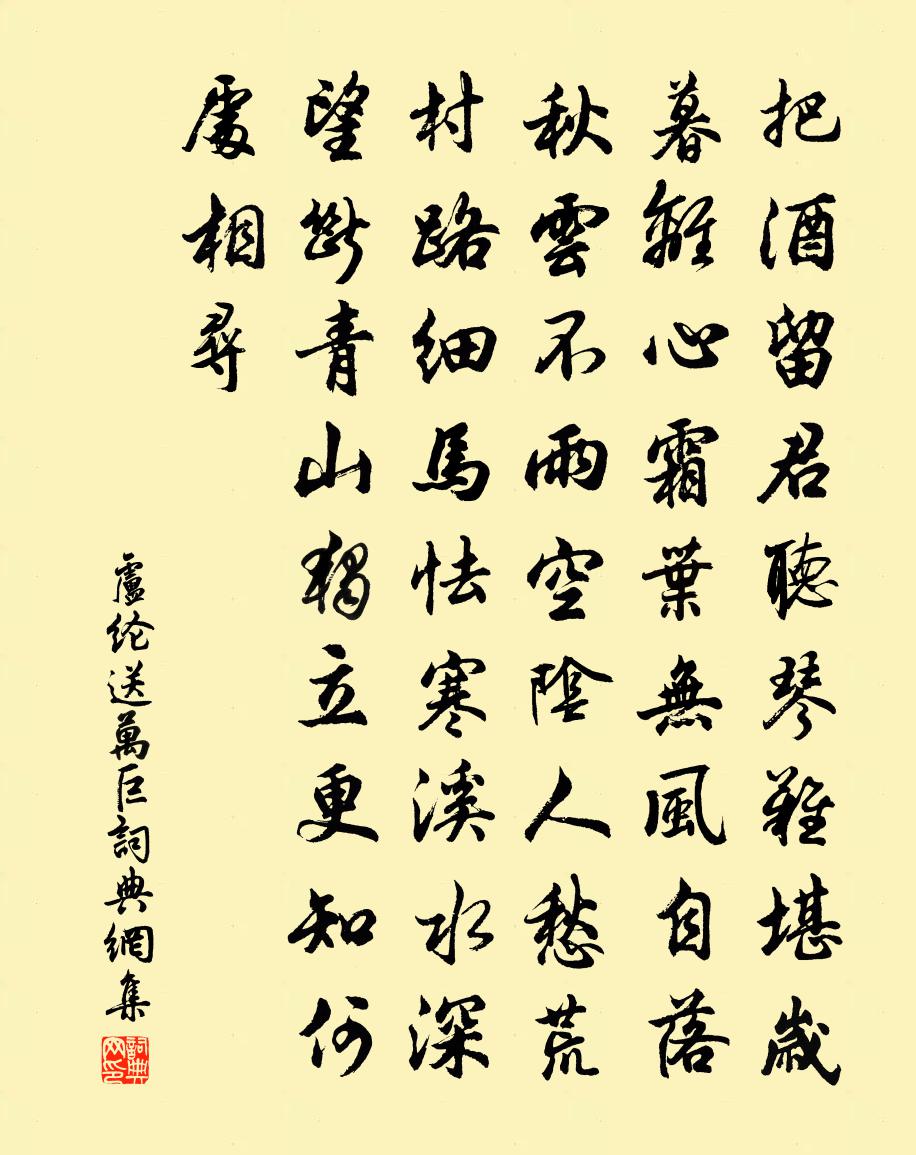 把酒留君聽琴難堪歲
暮離心霜葉無風自落
秋雲不雨空陰人愁荒
村路細馬怯寒溪水深
望斷青山獨立更知何
處相尋
盧纶送萬巨詞典網集
詞典网印